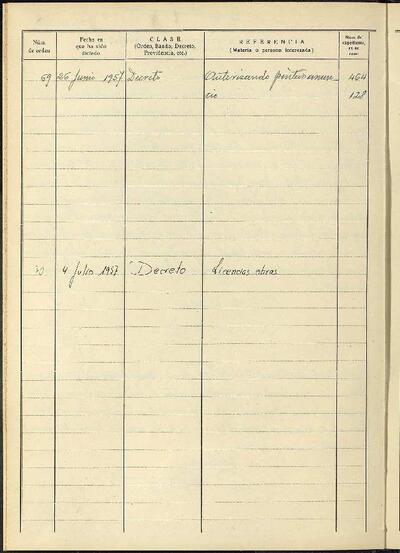 Núm. de orden
Fecha en que ha sido dictado
CLASE (Orden, Bando, Decreto, Providencia, etc.)
REFERENCIA (Materia o persona interesada)
Núm. de expediente, en su caso
69 26 Junio 1957 Decreto Autorizando pintar anun- 464
cio 128
70 4 Julio 1957 Decreto Licencias obras